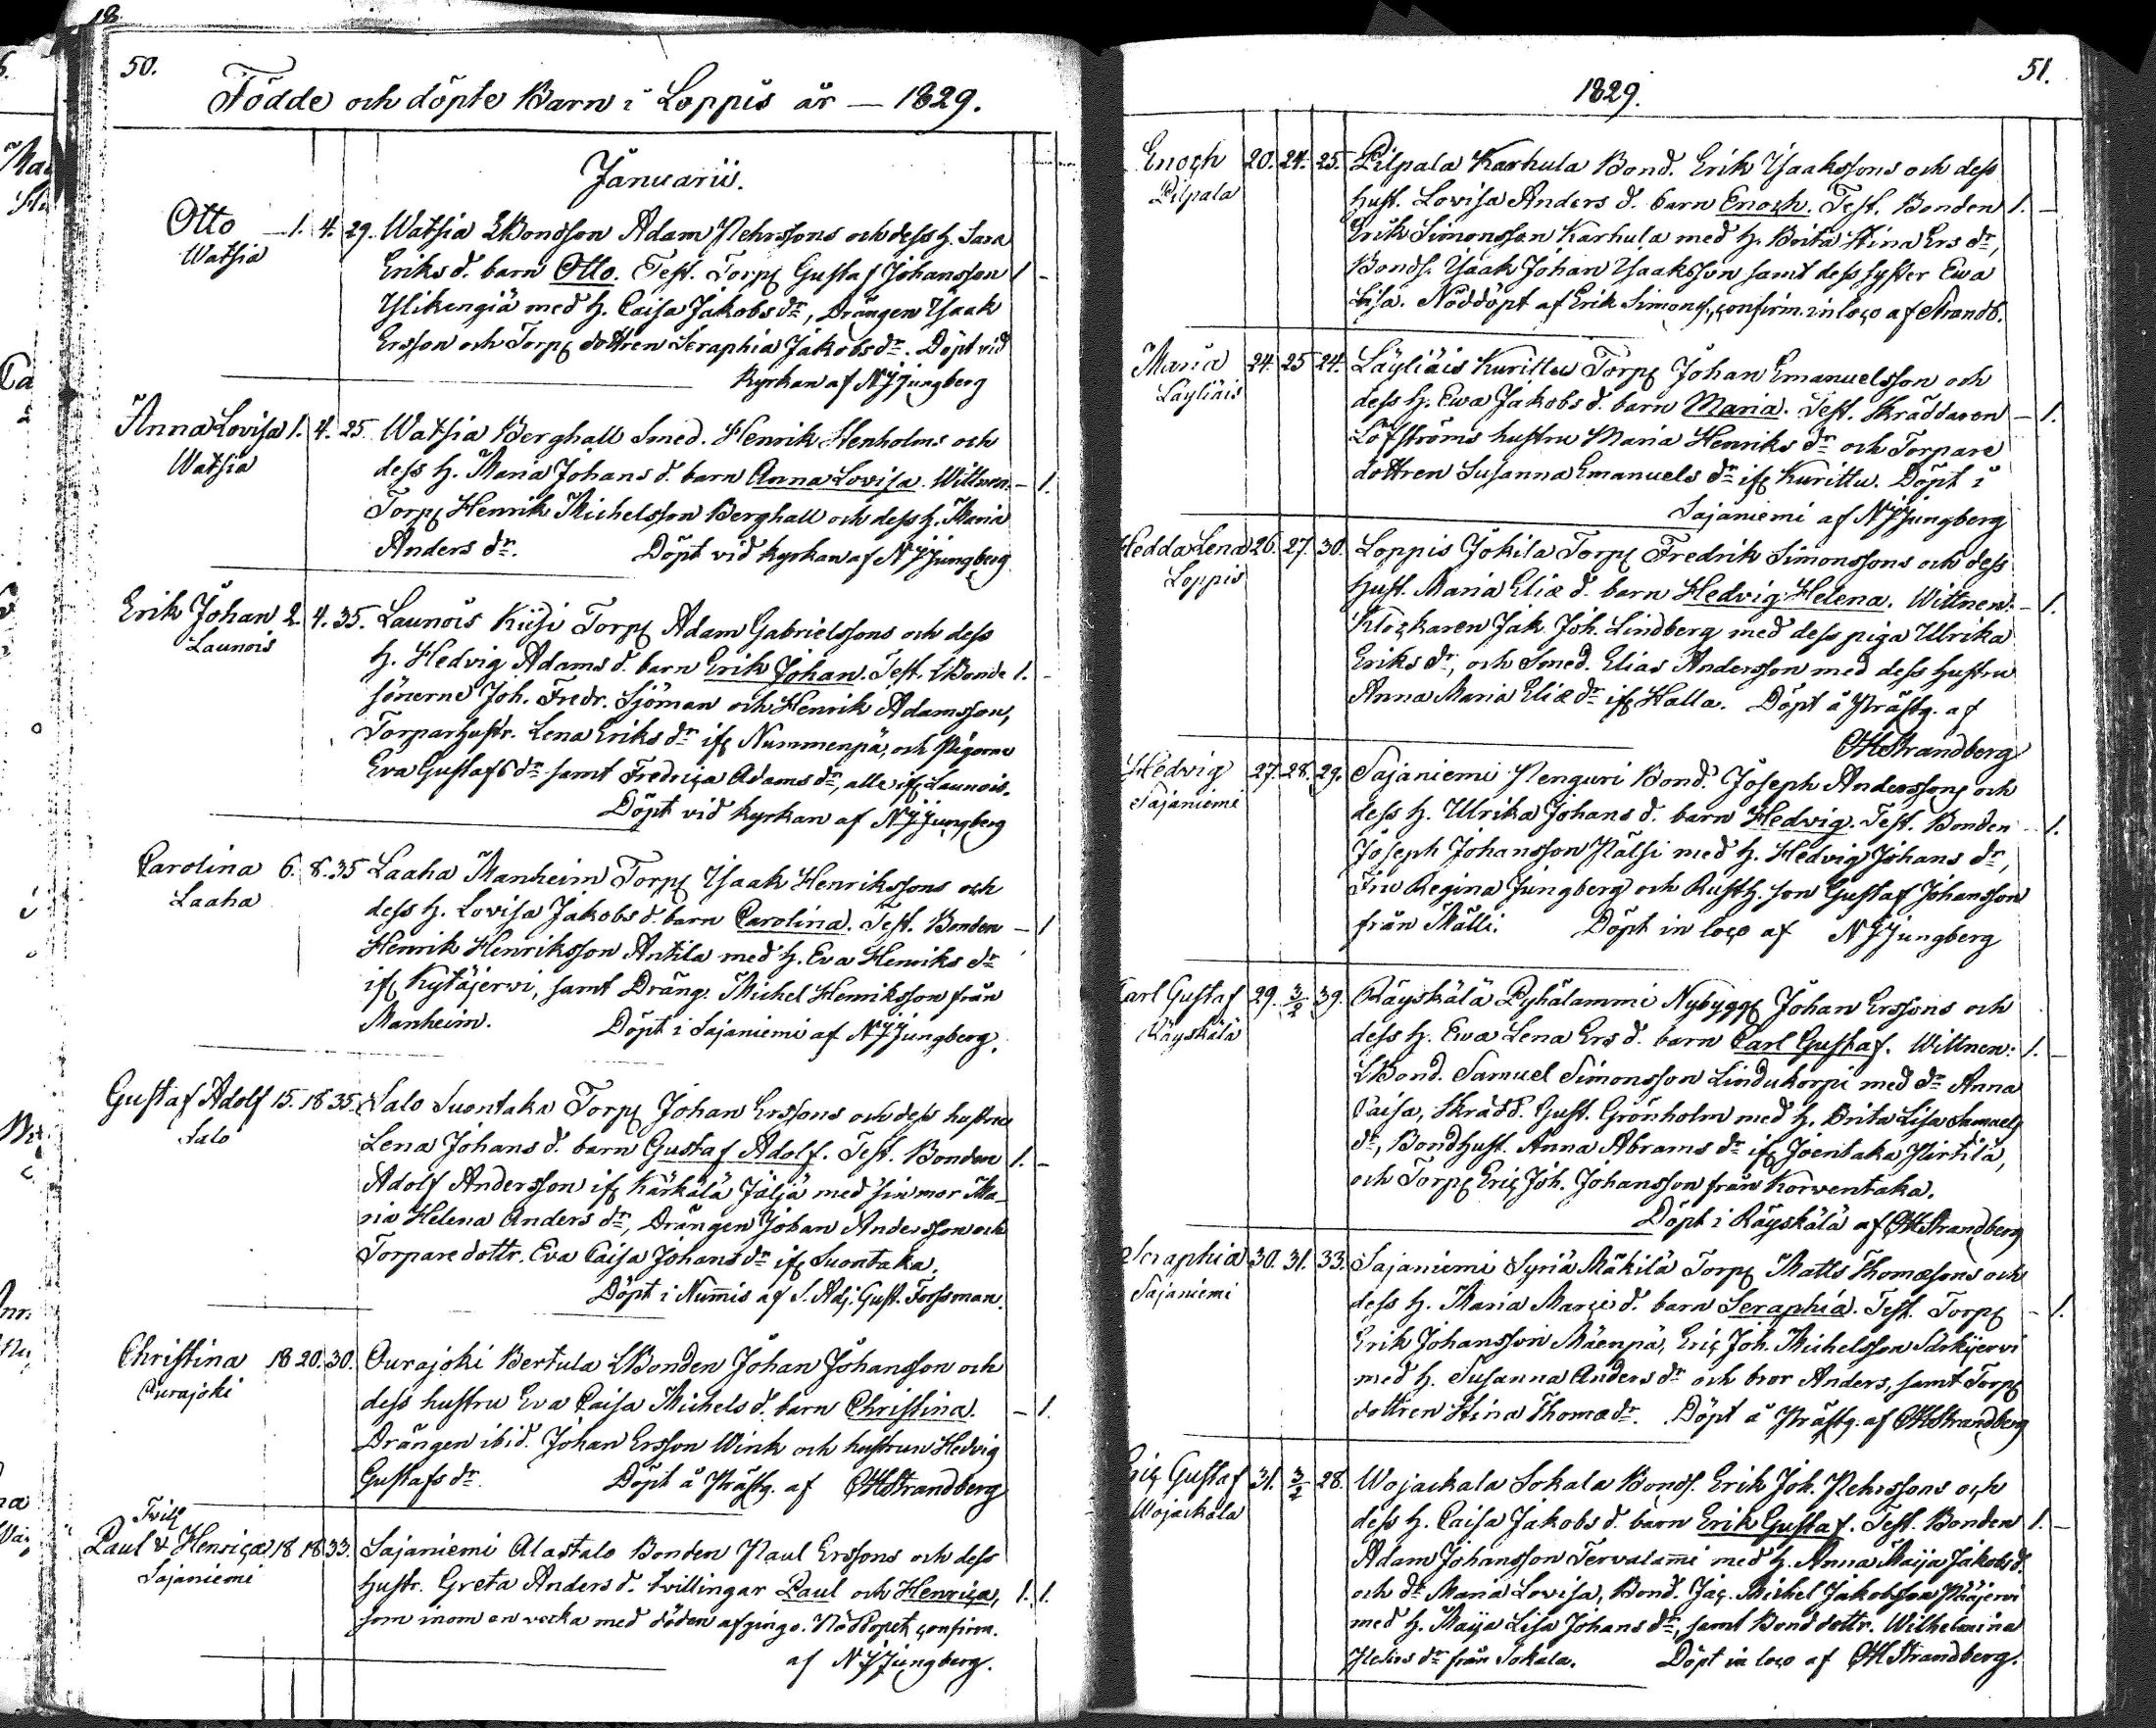 50.
Födde och döpte Barn i Loppis år — 1829.
Januarii.
Otto — 1. 4. 29. Watsia LBondson Adam Pehrssons och dess h. Sara
Watsia Eriks d. barn Otto. Test. Torp. Gustaf Johansson 1 -
Ylikengiä med h. Caisa Jakobs dr, Drängen Isaak
Ersson och Torp. dottren Seraphia Jakobs dr. Döpt vid
Kyrkan af NJJungberg
Anna Lovisa 1. 4. 25. Watsia Berghall Smed. Henrik Stenholms och
Watsia dess h. Maria Johans d. barn Anna Lovisa. Wittnen. - 1.
Torp. Henrik Michelsson Berghall och dess h. Maria
Anders dr. Döpt vid Kyrkan af NJJungberg
Erik Johan 2. 4. 35. Launois Kiisi Torp. Adam Gabrielssons och dess
Launois h. Hedvig Adams d. barn Erik Johan. Test. LBonde 1. -
sönerne Joh. Fredr. Sjöman och Henrik Adamsson,
Torparhustr. Lena Eriks dr if. Nummenpä, och Pigorne
Eva Gustafs dr samt Fredrica Adams dr, alle if. Launois.
Döpt vid Kyrkan af NJJungberg
Carolina 6. 8. 35 Laaha Manheim Torp. Isaak Henrikssons och
Laaha dess h. Lovisa Jakobs d. barn Carolina. Test. Bonden - 1
Henrik Henriksson Antila med h. Eva Henriks dr
if. Kytäjervi, samt Dräng. Michel Henriksson från
Manheim. Döpt i Sajaniemi af NJJungberg.
Gustaf Adolf 15. 18 35. Salo Suontaka Torp. Johan Erssons och dess hustru
Salo Lena Johans d. barn Gustaf Adolf. Test. Bonden 1. -
Adolf Andersson if. Kärkälä Jäljä med sin mor Ma-
ria Helena Anders dr, Drängen Johan Andersson och
Torpare dottr. Eva Caisa Johans dr if. Suontaka.
Döpt i Num̅is af S. Adj. Gust. Forssman.
Christina 18 20. 30. Ourajoki Bertula LBonden Johan Johansson och
Ourajoki dess hustru Eva Caisa Michels d. barn Christina. - 1.
Drängen ibid. Johan Ersson Wink och hustrun Hedvig
Gustafs dr. Döpt å Prästg. af CHStrandberg
Twill.
Paul & Henrica 18 18 33. Sajaniemi Alastalo Bonden Paul Erssons och dess
Sajaniemi hustr. Greta Anders d. tvillingar Paul och Henrica, 1. 1.
som inom en vecka med döden afgingo. Nöddopet confirm.
af NJJungberg.
51.
1829.
Enoch 20. 24. 25. Pilpala Karhula Bond. Erik Isaakssons och dess
Pilpala hust. Lovisa Anders d. barn Enoch. Test. Bonden 1. -
Erik Simonsson Karhula med h. Brita Stina Ers dr,
Bonds. Isaak Johan Isaaksson samt dess syster Ewa
Lisa. Nöddöpt af Erik Simons., confirm. in loco af Strandb.
Maria 24. 25 24. Läyliäis Kurittu Torp. Johan Emanuelsson och
Läyliäis dess h. Ewa Jakobs d. barn Maria. Test. Skräddaren - 1.
Löfströms hustru Maria Henriks dr och Torpare
dottren Susanna Emanuels dr if. Kurittu. Döpt i
Sajaniemi af NJJungberg
Hedda Lena 26. 27. 30. Loppis Jokila Torp. Fredrik Simonssons och dess
Loppis hust. Maria Eliæ d. barn Hedvig Helena. Wittnen: - 1.
Klockaren Jak. Joh. Lindberg med dess piga Ulrika
Eriks dr, och Smed. Elias Andersson med dess hustru
Anna Maria Eliæ dr if. Halla. Döpt å Prästg. af
CHStrandberg
Hedvig 27. 28. 29. Sajaniemi Penguri Bond. Joseph Anderssons och
Sajaniemi dess h. Ulrika Johans d. barn Hedvig. Test. Bonden - 1.
Joseph Johansson Pälsi med h. Hedvig Johans dr,
Fru Regina Jungberg och Rusth. son Gustaf Johansson
från Mälli. Döpt in loco af NJJungberg
Carl Gustaf 29. 3/2 39. Räyskälä Pyhälammi Nybygg. Johan Erssons och
Räyskälä dess h. Ewa Lena Ers d. barn Carl Gustaf. Wittnen: 1. -
LBond. Samuel Simonsson Lindukorpi med dr Anna
Caisa, Skrädd. Gust. Grönholm med h. Brita Lisa Samuels
dr, Bondhust. Anna Abrams dr if. Joentaka Pirtilä,
och Torp. Eric Joh. Johansson från Korventaka.
Döpt i Räyskälä af CHStrandberg
Seraphia 30. 31. 33. Sajaniemi Syriä Mäkilä Torp. Matts Thomæsons och
Sajaniemi dess h. Maria Marci d. barn Seraphia. Test. Torp. - 1.
Erik Johansson Mäenpä, Eric Joh. Michelsson Särkijervi
med h. Susanna Anders dr och bror Anders, samt Torp.
dottren Stina Thomæ dr. Döpt å Prästg. af CHStrandberg
Eric Gustaf 31. 3/2 28. Wojackala Sokala Bonds. Erik Joh. Pehrssons och
Wojackala dess h. Caisa Jakobs d. barn Erik Gustaf. Test. Bonden 1. -
Adam Johansson Tervalam̅i med h. Anna Maija Jakobs d.
och dr Maria Lovisa, Bond. Jac. Michel Jakobsson Pääjervi
med h. Maija Lisa Johans dr, samt Bonddottr. Wilhelmina
dr från Sokala. Döpt in loco af CHStrandberg.